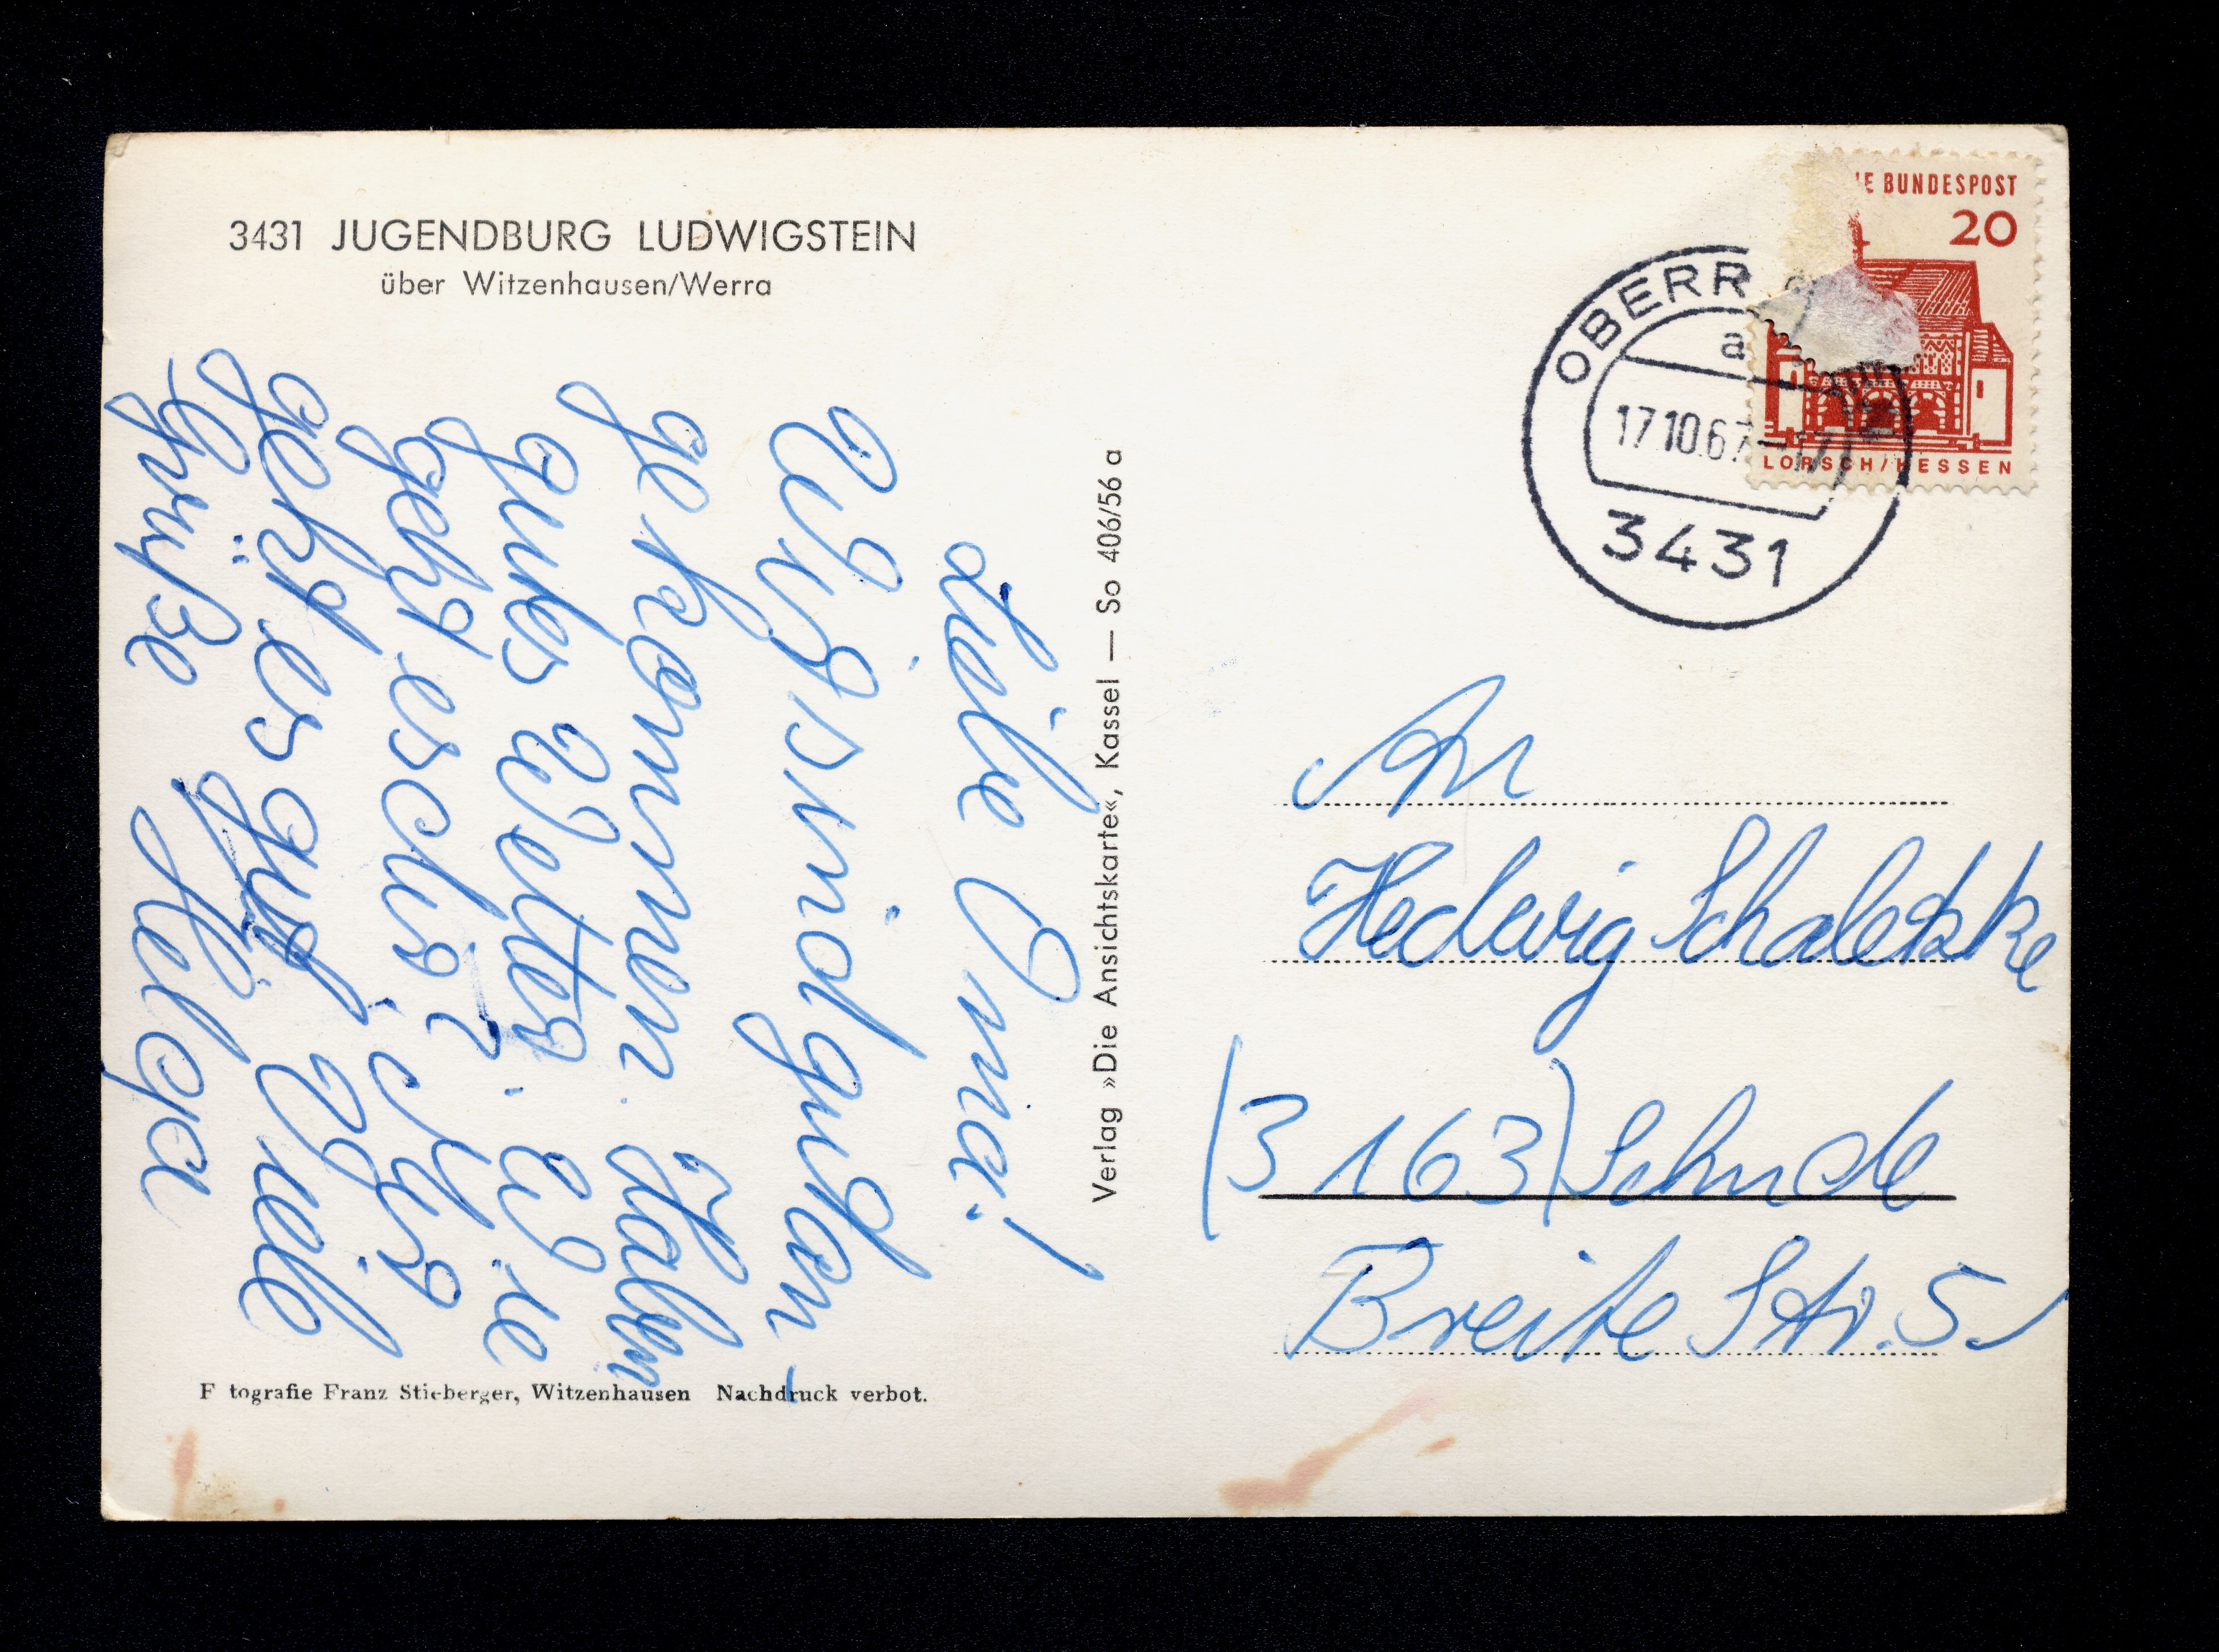 3431 JUGENDBURG LUDWIGSTEIN
über Witzenhausen/Werra
Liebe Oma!
Wir sind gut an
gekommen. Haben
gutes Wetter. Wie
geht es dir? Mir
geht es gut. Viele
Grüße Helga
Fotografie Franz Stieberger, Witzenhausen Nachdruck verbot.
Verlag »Die Ansichtskarte«, Kassel — So 406/56 a
IE BUNDESPOST
20
LORSCH/HESSEN
OBERR
a
17.10.67-17
3431
An
Hedwig Schaletzke
(3163) Sehnde
Breite Str. 5